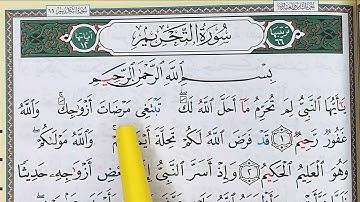 سُورَةُ التَّحْرِيمِ
بِسْمِ اللَّهِ الرَّحْمَٰنِ الرَّحِيمِ
يَا أَيُّهَا النَّبِيُّ لِمَ تُحَرِّمُ مَا أَحَلَّ اللَّهُ لَكَ ۖ تَبْتَغِي مَرْضَاتَ أَزْوَاجِكَ ۚ وَاللَّهُ
غَفُورٌ رَّحِيمٌ ١ قَدْ فَرَضَ اللَّهُ لَكُمْ تَحِلَّةَ وَاللَّهُ مَوْلَاكُمْ ۖ
وَهُوَ الْعَلِيمُ الْحَكِيمُ ٢ وَإِذْ أَسَرَّ النَّبِيُّ أَزْوَاجِهِ حَدِيثًا